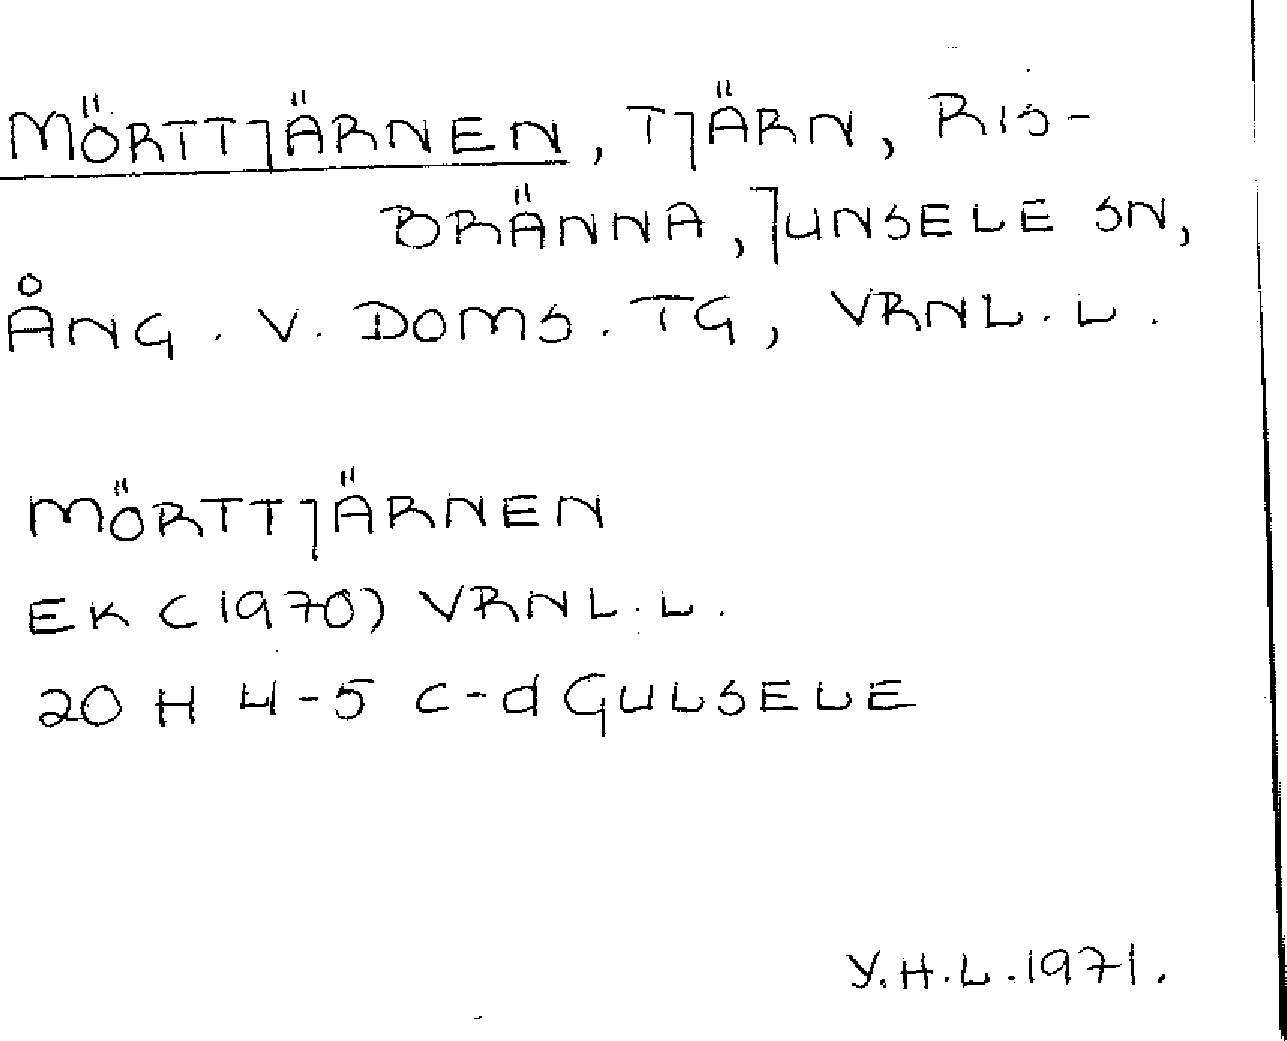 MÖRTTJÄRNEN, TJÄRN, RIS-
BRÄNNA, JUNSELE SN,
ÅNG. V. DOMS. TG, VRNL. L.
MÖRTTJÄRNEN
EK (1970) VRNL. L.
20 H 4-5 c-d GULSELE
Y.H.L. 1971.